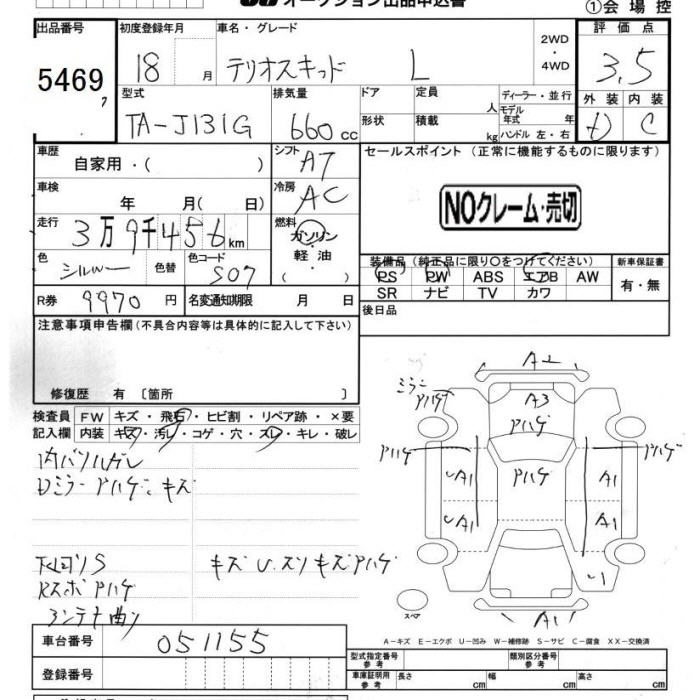 オークション出品申込書 ①会場控
出品番号 初度登録年月 車名・グレード 2WD・4WD 評価点
5469 18 月 テリオスキッド L 3,5
型式 排気量 ドア 定員 人 ディーラー・並行 外装 内装
TA-J131G 660 cc 形状 積載 kg モデル年式 年 ハンドル 左・右 D C
車歴 自家用・( ) シフト AT セールスポイント (正常に機能するものに限ります)
車検 年 月( 日) 冷房 AC NOクレーム・売切
走行 3万9千456km 燃料 ガソリン・軽油・( )
色 シルバー 色替 色コード S07
装備品 (純正品に限り○をつけてください) 新車保証書
PS PW ABS エアB AW 有・無
SR ナビ TV カワ
R券 9970円 名変通知期限 月 日 後日品
注意事項申告欄(不具合内容等は具体的に記入して下さい)
修復歴 有 〔箇所 〕
検査員 FW キズ・飛石・ヒビ割・リペア跡・×要
記入欄 内装 キズ・汚レ・コゲ・穴・スレ・キレ・破レ
内バリハガレ
Dミラー Pハゲ、キズ
下回リS キズ U、スリキズPハゲ
RスポPハゲ
アンテナ曲リ
A2
ミラーPハゲ A3
Pハゲ
Pハゲ Pハゲ Pハゲ
UA1 A1
UA1 A1
U1
スペア A1
A-キズ E-エクボ U-凹み W-補修跡 S-サビ C-腐食 XX-交換済
車台番号 051155 型式指定番号 参考 類別区分番号 参考
登録番号 車庫証明用 参考 長さ cm 幅 cm 高さ cm